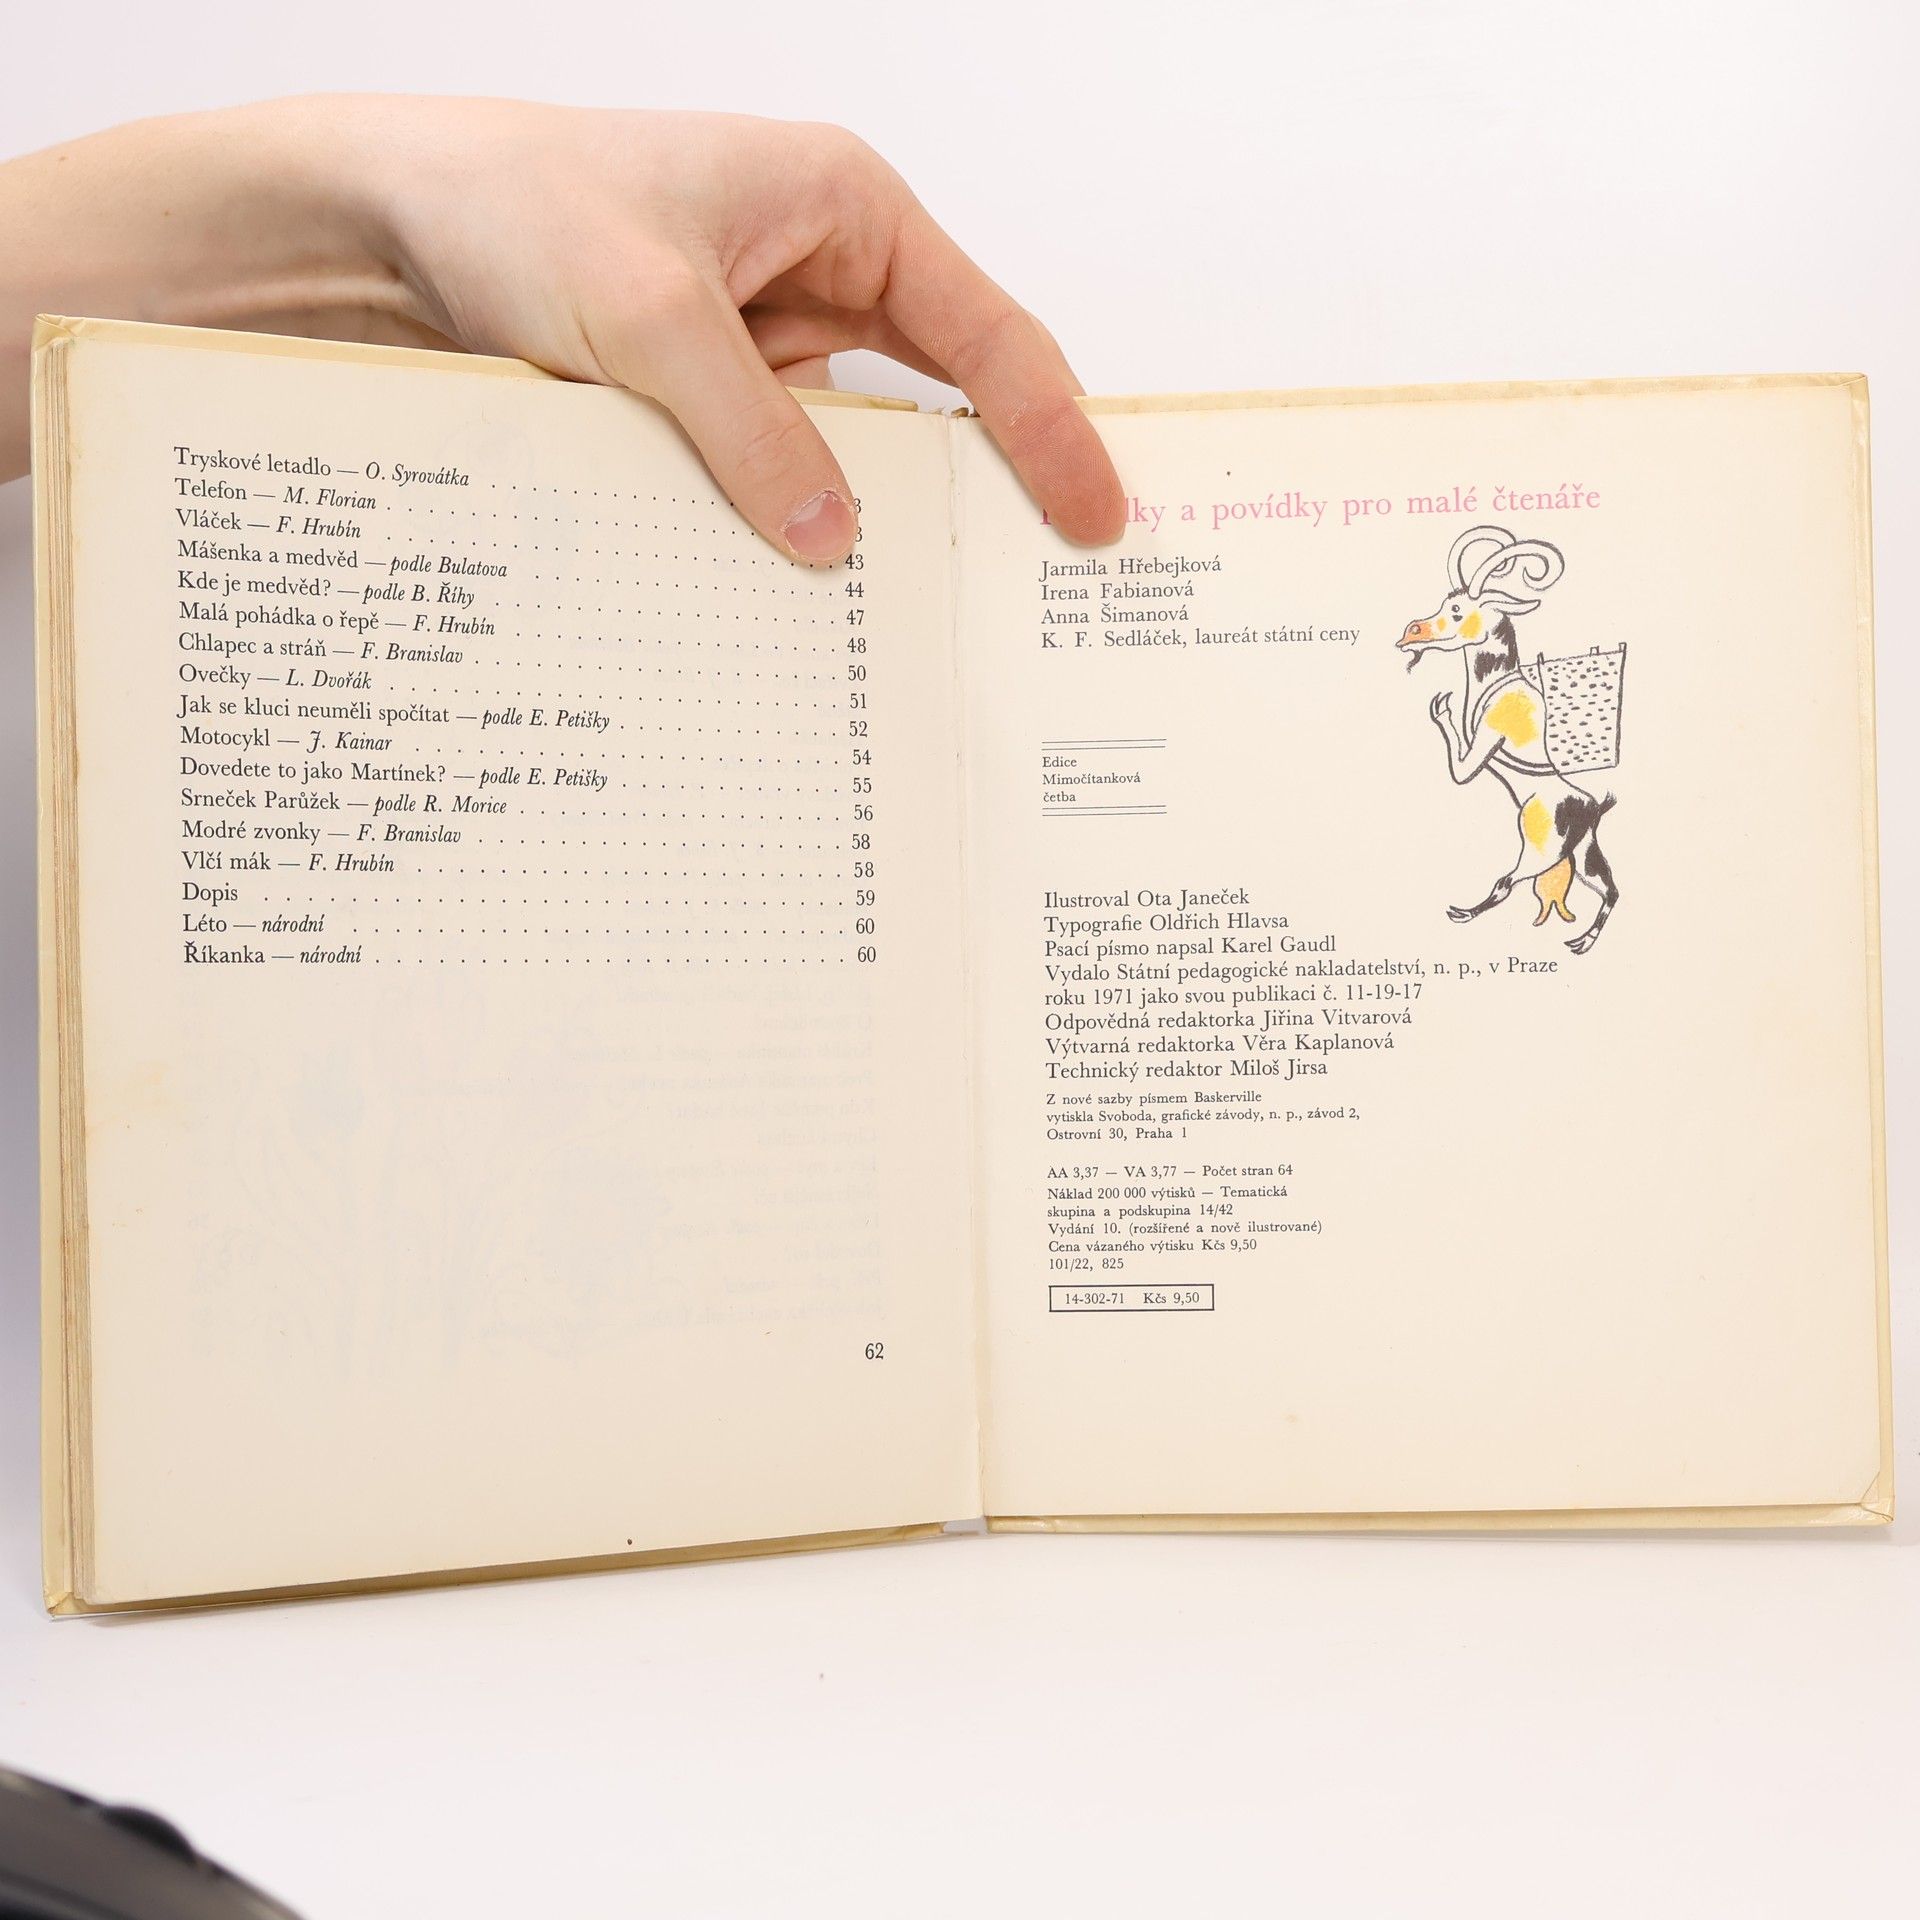 Tryskové letadlo — O. Syrovátka . . . . . . . . . . 3
Telefon — M. Florian . . . . . . . . . . . . . . 3
Vláček — F. Hrubín . . . . . . . . . . . . . . . . 43
Mášenka a medvěd — podle Bulatova . . . . . . . . . . . . 44
Kde je medvěd? — podle B. Říhy . . . . . . . . . . . . . . 47
Malá pohádka o řepě — F. Hrubín . . . . . . . . . . . . . 48
Chlapec a stráň — F. Branislav . . . . . . . . . . . . . . . 50
Ovečky — L. Dvořák . . . . . . . . . . . . . . . . . . 51
Jak se kluci neuměli spočítat — podle E. Petišky . . . . . . . . . 52
Motocykl — J. Kainar . . . . . . . . . . . . . . . . . 54
Dovedete to jako Martínek? — podle E. Petišky . . . . . . . . . 55
Srneček Parůžek — podle R. Morice . . . . . . . . . . . . . 56
Modré zvonky — F. Branislav . . . . . . . . . . . . . . . 58
Vlčí mák — F. Hrubín . . . . . . . . . . . . . . . . . 58
Dopis . . . . . . . . . . . . . . . . . . . . . . . 59
Léto — národní . . . . . . . . . . . . . . . . . . . 60
Říkanka — národní . . . . . . . . . . . . . . . . . . 60
62
a povídky pro malé čtenáře
Jarmila Hřebejková
Irena Fabianová
Anna Šimanová
K. F. Sedláček, laureát státní ceny
Edice
Mimočítanková
četba
Ilustroval Ota Janeček
Typografie Oldřich Hlavsa
Psací písmo napsal Karel Gaudl
Vydalo Státní pedagogické nakladatelství, n. p., v Praze
roku 1971 jako svou publikaci č. 11-19-17
Odpovědná redaktorka Jiřina Vitvarová
Výtvarná redaktorka Věra Kaplanová
Technický redaktor Miloš Jirsa
Z nové sazby písmem Baskerville
vytiskla Svoboda, grafické závody, n. p., závod 2,
Ostrovní 30, Praha 1
AA 3,37 — VA 3,77 — Počet stran 64
Náklad 200 000 výtisků — Tematická
skupina a podskupina 14/42
Vydání 10. (rozšířené a nově ilustrované)
Cena vázaného výtisku Kčs 9,50
101/22, 825
14-302-71 Kčs 9,50